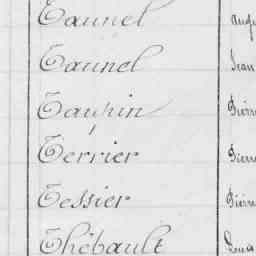 Taunel
Taunel Jean
Taupin Pierre
Terrier Pierre
Tessier Pierre
Thébault